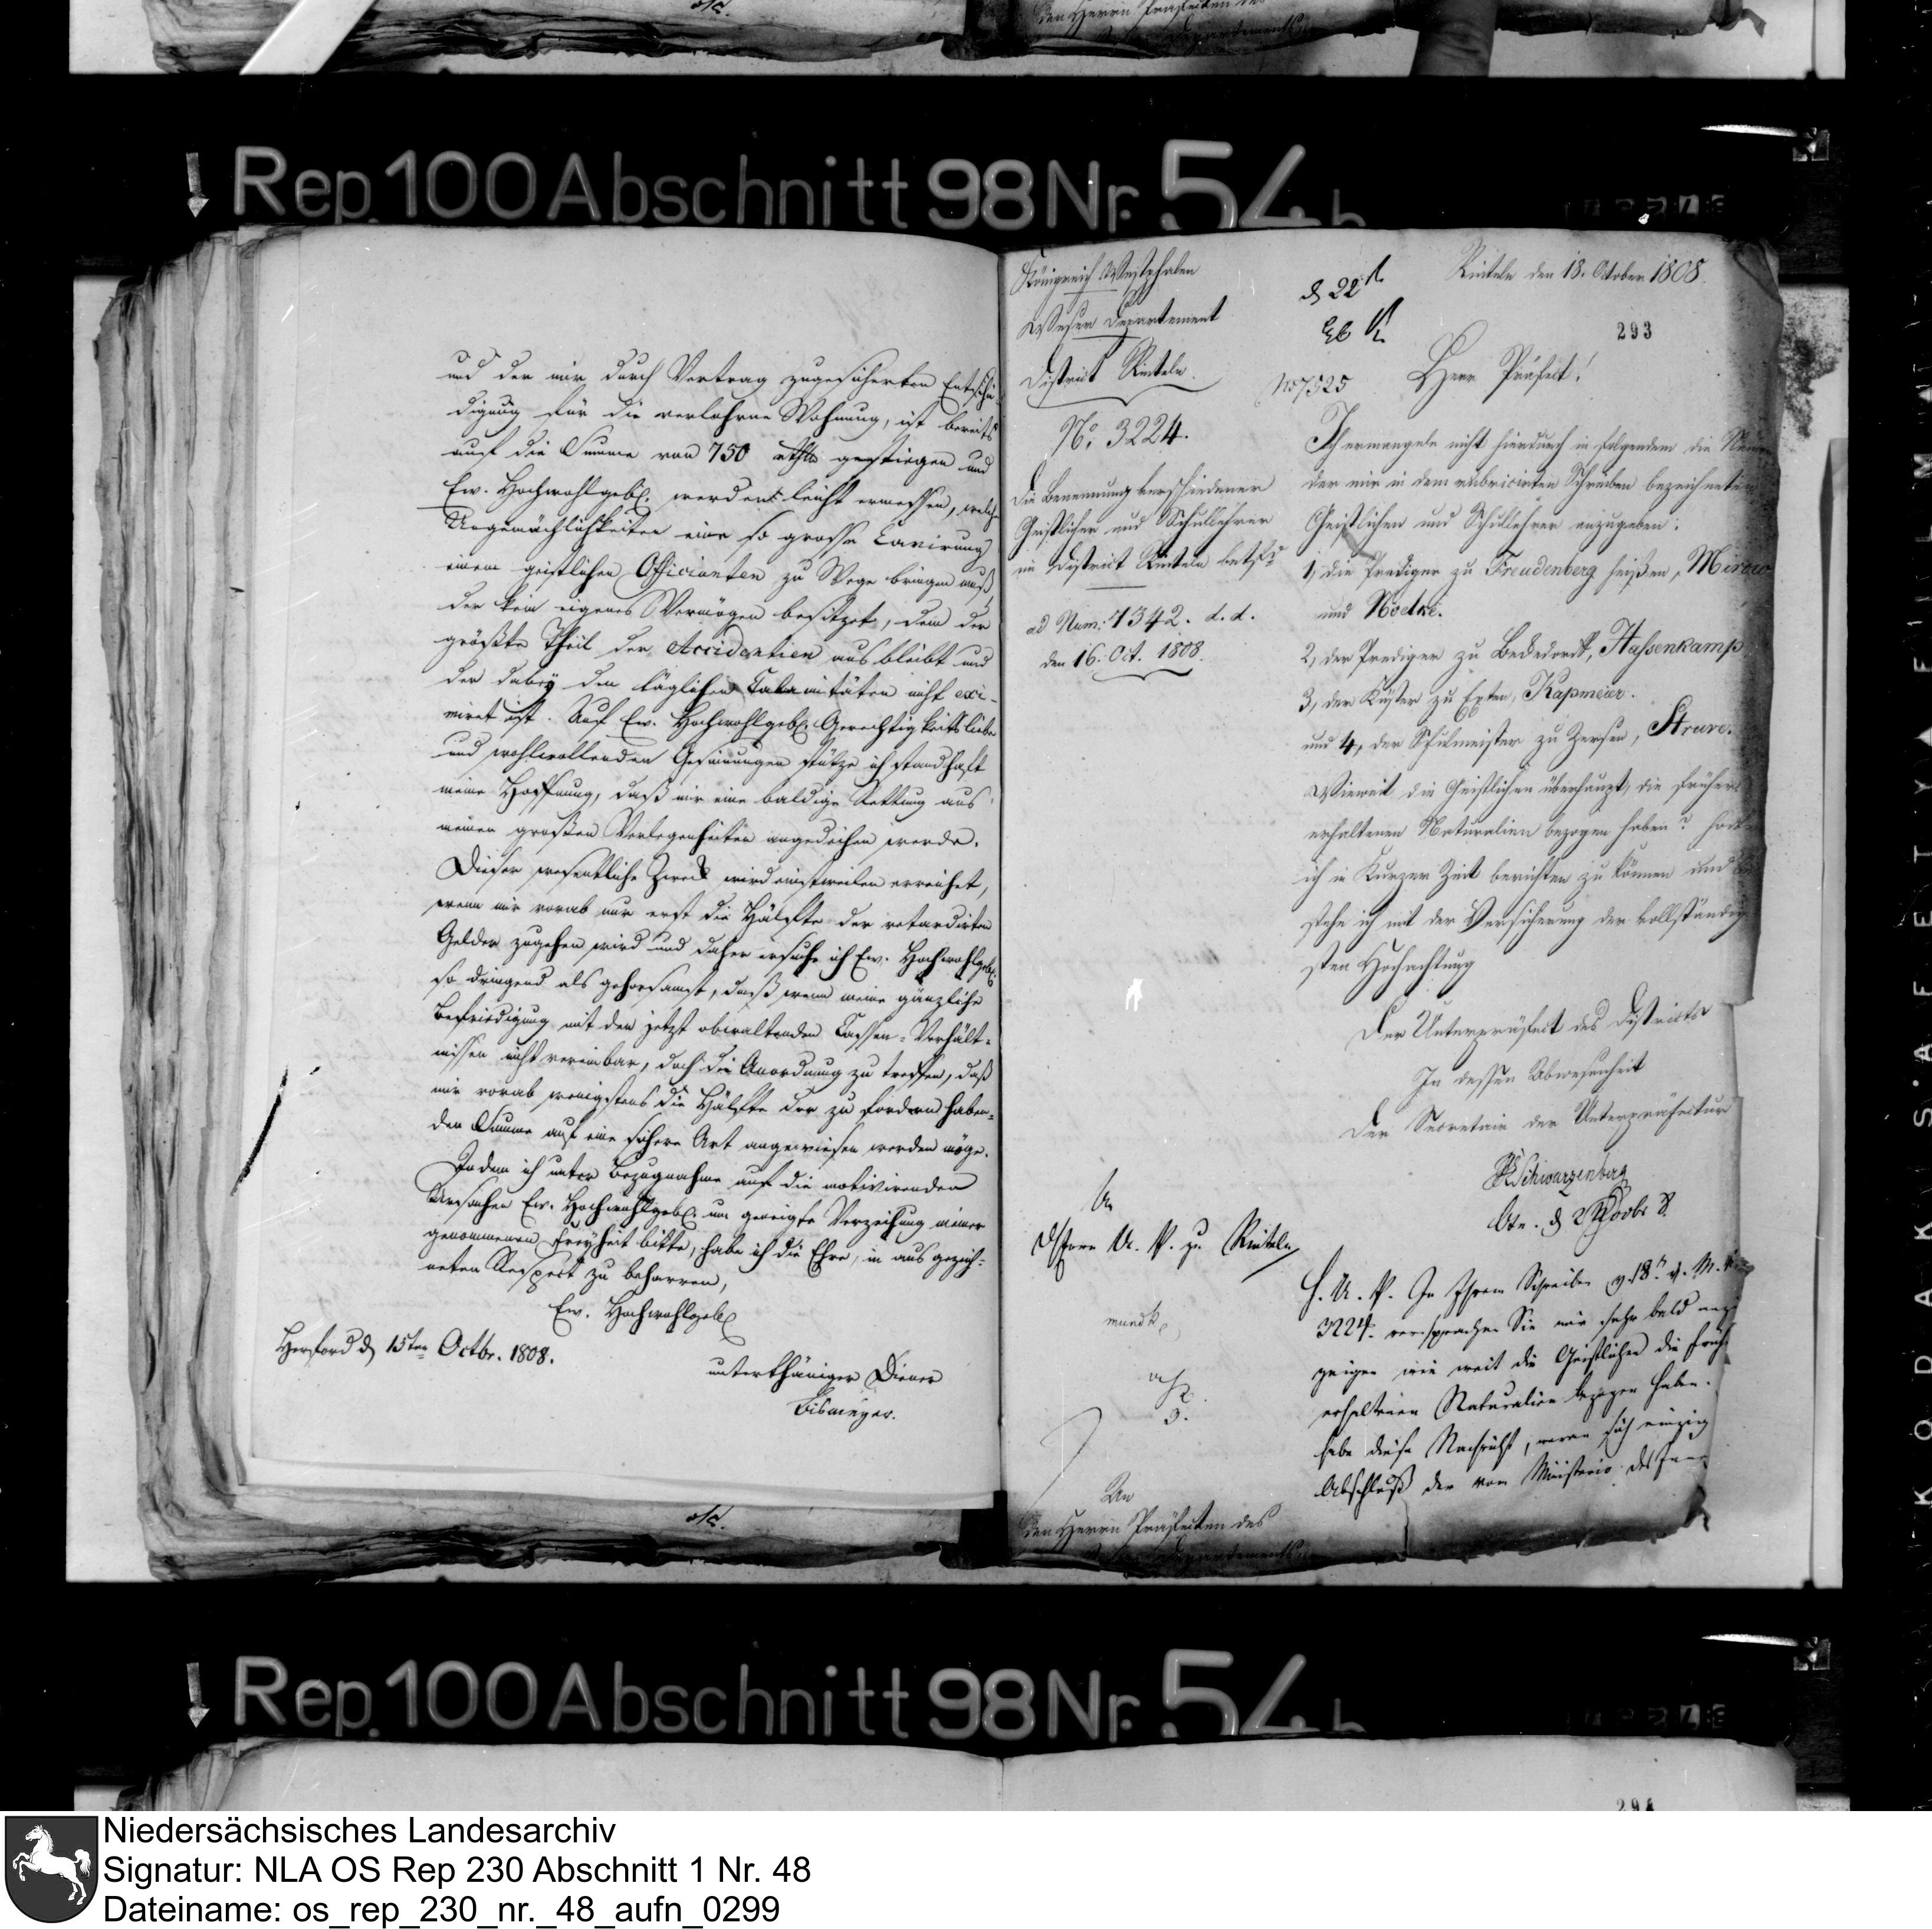 Rep. 100 Abschnitt 98 Nr. 54 b
und der mir durch Vertrag zugesicherten Entschä-
digung für die verlohrne Wohnung, ist bereits
auf die Summe von 750 rthlr gestiegen und
Ew. Hochwohlgeb. werden leicht ermessen, welche
Ungemächlichkeiten eine so grosse Cavirung
einem geistlichen Officianten zu Wege bringen muß,
der kein eigenes Vermögen besitzet, dem der
größte Theil der Accidentien ausbleibt und
der dabey den täglichen Calamitäten nicht exi-
miret ist. Auf Ew. Hochwohlgeb. Gerechtigkeitsliebe
und wohlwollenden Gesinnungen stütze ich standhaft
meine Hoffnung, daß mir eine baldige Rettung aus
meinen großen Verlegenheiten angedeihen werde.
Dieser wesentliche Zweck wird einstweilen erreichet,
wenn mir vorab nur erst die Hälfte der retardirten
Gelder zugehen wird und daher ersuche ich Ew. Hochwohlgeb.
so dringend als gehorsamst, daß wenn meine gänzliche
Befriedigung mit den jetzt obwaltenden Cassen-Verhält-
nissen nicht vereinbar, doch die Anordnung zu treffen, daß
mir vorab wenigstens die Hälfte der zu fordern haben-
den Summe auf eine sichere Art angewiesen werden möge.
Indem ich unter Bezugnahme auf die motivirenden
Ursachen Ew. Hochwohlgeb. um geneigte Verzeihung meiner
genommenen Freyheit bitte, habe ich die Ehre, in ausgezeich-
neten Respect zu beharren,
Ew. Hochwohlgeb
Herford d 15ten Octbr. 1808.
unterthäniger Diener
Königreich Westphalen
Weser Departement
District Rinteln.
No. 3224.
Die Benennung verschiedener
Geistlicher und Schullehrer
im District Rinteln betfd
ad Num: 7342. d. d.
den 16. Oct. 1808.
Rinteln den 18. October 1808
d 22
293
No 7525
Herr Präfect!
Ich ermangele nicht hierdurch in folgendem die Namen
der mir in dem rubricirten Schreiben bezeichneten
Geistlichen und Schullehrer anzugeben:
1, die Prediger zu Freudenberg heißen,
und
2, der Prediger zu Beckedorff, Hassenkamp
3, der Küster zu Exten, Kapmeier.
und 4, der Schulmeister zu Zersen, Struve.
Wieweit die Geistlichen überhaupt, die früher
erhaltenen Naturalien bezogen haben? hoffe
ich in kurzer Zeit berichten zu können und be
stehe ich mit der Versicherung der vollständig-
sten Hochachtung
Der Unterpräfect des Districts
In dessen Abwesenheit
Der Secretair der Unterpräfectur
Schwarzenberg
An
Herrn U. P. zu Rinteln
mund
H. U. P. In Ihrem Schreiben v. 18t. d. M.
3224. versprachen Sie mir sehr bald anzu
zeigen wie weit die Geistlichen die früher
erhaltenen Naturalien bezogen haben.
habe diese Nachricht, woran sich einzig
Abschluß der vom Ministerio des Inn
An
den Herrn Präfecten des
Departements
Rep. 100 Abschnitt 98 Nr. 54 b
294
KODAK SAFETY FILM
Niedersächsisches Landesarchiv
Signatur: NLA OS Rep 230 Abschnitt 1 Nr. 48
Dateiname: os_rep_230_nr._48_aufn_0299